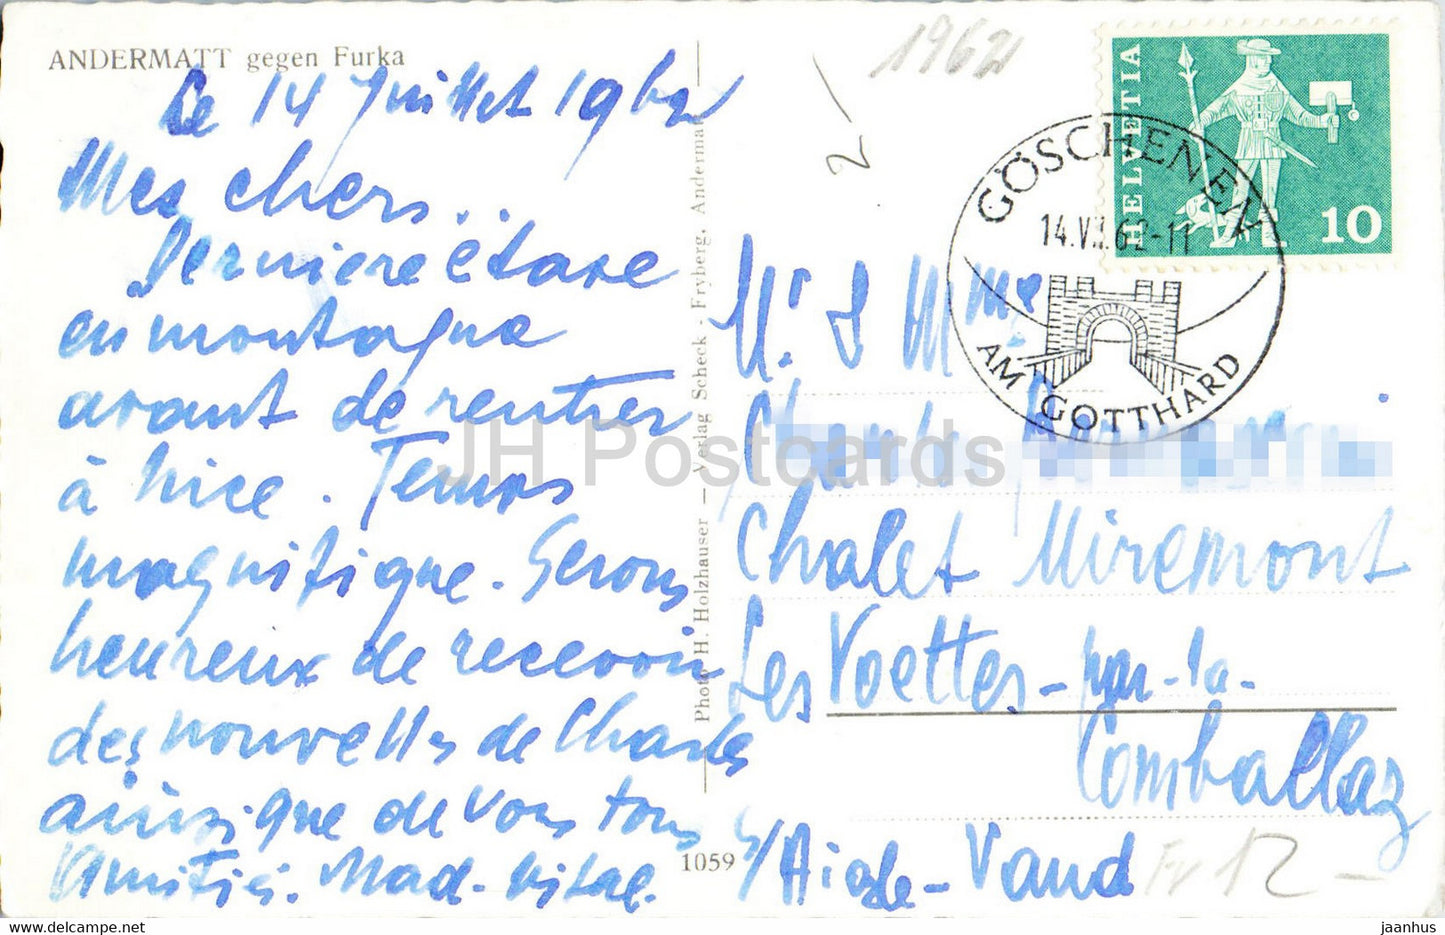 ANDERMATT gegen Furka
Le 14 Juillet 1962
Mes chers..
Dernière étape
en montagne
avant de rentrer
à Nice. Temps
magnifique. Serons
heureux de recevoir
des nouvelles de Charles
ainsi que de vous tous
Amitiés. Mad. Vital.
Photo H. Holzhauser — Verlag Scheck - Fryberg, Andermatt
1059
1962
2
HELVETIA
10
GÖSCHENEN
14.VI.62-11
AM GOTTHARD
Mr. & Mme
Charles
Chalet Miremont
Les Voettes - par - la -
Comballaz
s/Aigle - Vaud
Fr 12 -
JH Postcards
www.delcampe.net
jaanhus